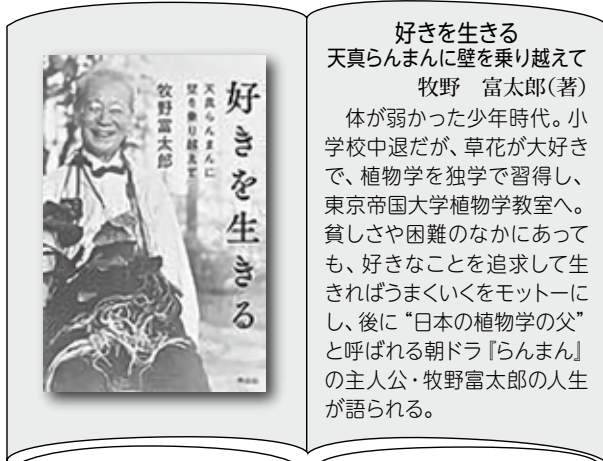 好きを生きる
天真らんまんに
壁を乗り越えて
牧野富太郎
好きを生きる
天真らんまんに壁を乗り越えて
牧野　富太郎(著)
　体が弱かった少年時代。小
学校中退だが、草花が大好き
で、植物学を独学で習得し、
東京帝国大学植物学教室へ。
貧しさや困難のなかにあって
も、好きなことを追求して生
きればうまくいくをモットーに
し、後に“日本の植物学の父”
と呼ばれる朝ドラ『らんまん』
の主人公・牧野富太郎の人生
が語られる。